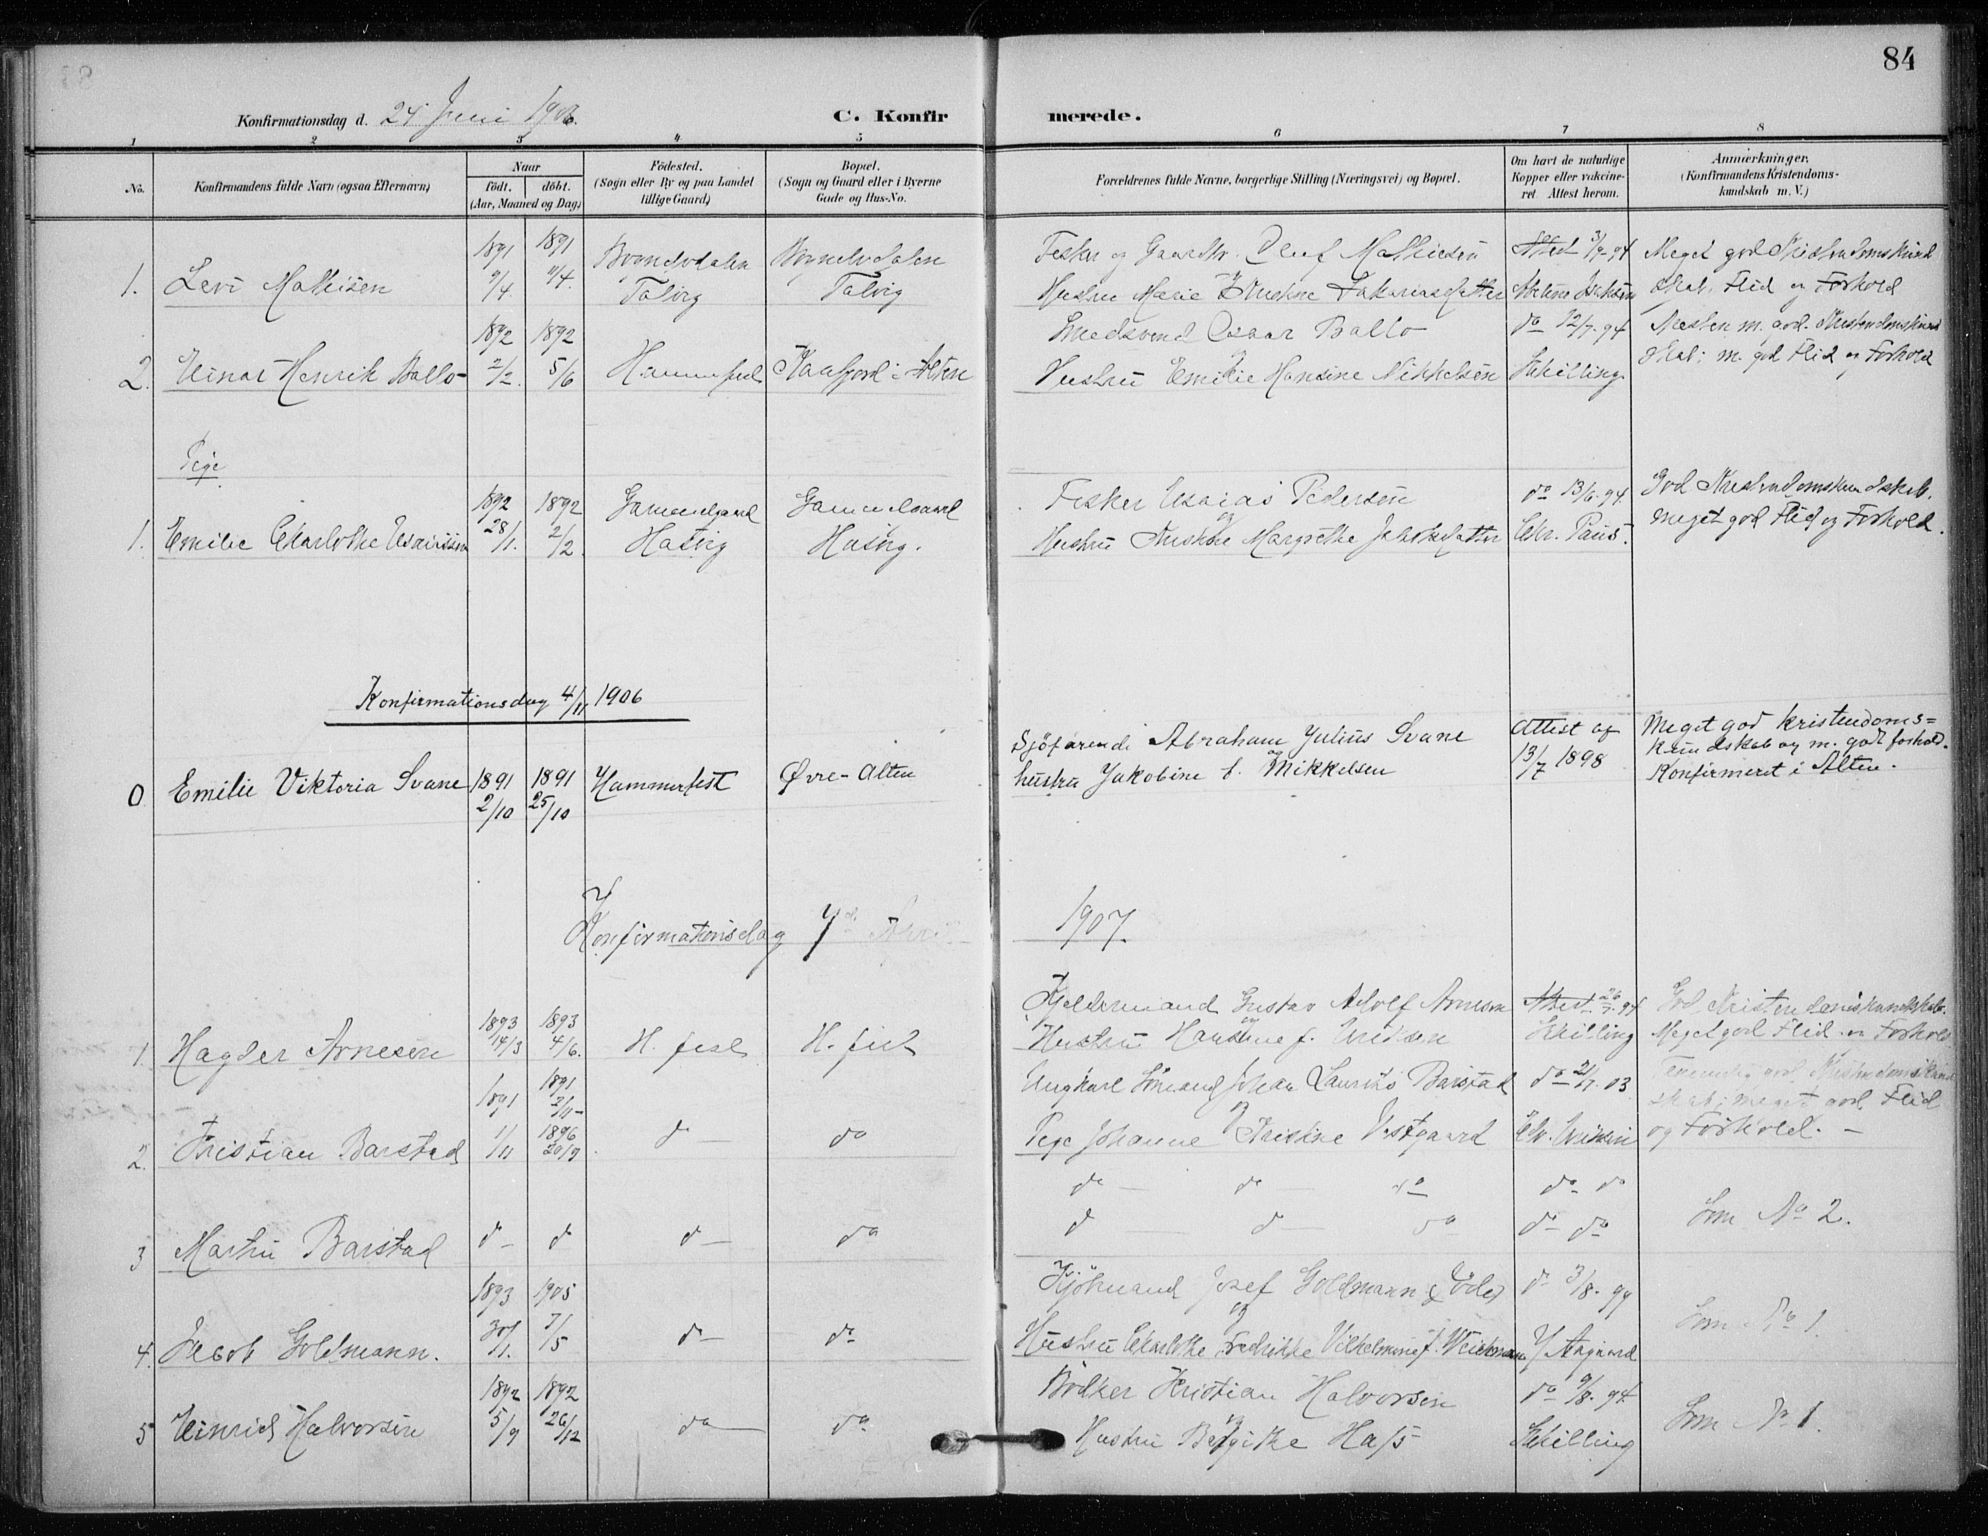 84
Konfirmationsdag d. 24 Juni 1906.
C. Konfirmerede.
1 2 3 4 5 6 7 8
No.
Konfirmandens fulde Navn (ogsaa Efternavn)
Naar
födt. döbt.
(Aar, Maaned og Dag)
Födested.
(Sogn eller By og paa Landet
tillige Gaard)
Bopæl.
(Sogn og Gaard eller i Byerne
Gade og Hus-No.
Forældrenes fulde Navne, borgerlige Stilling (Næringsvei) og Bopæl.
Om havt de naturlige
Kopper eller vakcine-
ret. Attest herom.
Anmærkninger.
(Konfirmandens Kristendoms-
kundskab m. V.)
1891 1891
Talvig Talvig
1. Levi Mathisen
9/4 11/4
Fisker og Gaardbr. Oluf Mathiesen
Hustru Marie Zakariasdatter
Attest 3/9-94
Meget god Kristendomskund
skab. Flid og Forhold
1892 1892
2. Einar Henrik Ballo
2/2 5/6
Hammerfest
Kaafjord i Alten
Smedsvend Oscar Ballo
Hustru Emilie Hansine Mikkelsen
do 12/7. 94
Schilling
Næsten m. god Kristendomskund
skab; m. god Flid og Forhold
Pige
1892 1892
1. Emilie Charlotte Esaiassen
28/1. 2/2
Gammelgaard Gammelgaard
Hasvig Hasvig.
Fisker Esaias Pedersen
og
Hustru Kristine Margrethe Jakobsdatter
do 13/6. 94
Chr. Paus.
God Kristendomskundskab.
Meget god Flid og Forhold.
Konfirmationsdag 4/11 1906
0 Emilie Viktoria Svane
1891 1891
2/10 25/10
Hammerfest
Øvre-Alten
Sjöfarende Abraham Julius Svane
og
hustru Jakobine f. Mikkelsen
Attest af
13/7 1898
Meget god kristendoms=
kundskab og m. godt forhold.
Konfirmeret i Alten.
Konfirmationsdag 7de April
1907.
1893 1893
1. Hagder Arnesen
14/3 4/6.
H. fest H. fest
Gustav Adolf Arnesen
og
Hustru Hansine f. Eriksen
Attest 26/7. 94
Schilling
God Kristendomskundskab.
Meget god Flid og Forhold
1891 1891
2/11
1/11 1896
20/9
2. Kristian Barstad
do do
Ungkarl Sömand Johan Laurits Barstad
og
Pige Johanne Kristine Vestgaard
do 2/7. 03
Chr. Eriksen
god Kristendomskund
skab; meget god Flid
og Forhold. —
3 Martin Barstad
do do do do
do do do do do
do do do do do
Som No 2.
1893 1905
4. Jacob Goldmann.
30/1. 7/5
do do
Kjöbmand Josef Goldmann
og
Hustru Charlotte Fredrikke Vilhelmine f.
do 3/8. 99
Aagaard
Som No 1.
1892 1892
5 Einrich Halvorsen
5/9 26/12
do do
Bödker Kristian Halvorsen
og
Hustru Bergitte Hass
do 9/8. 94
Schilling
Som No 1.